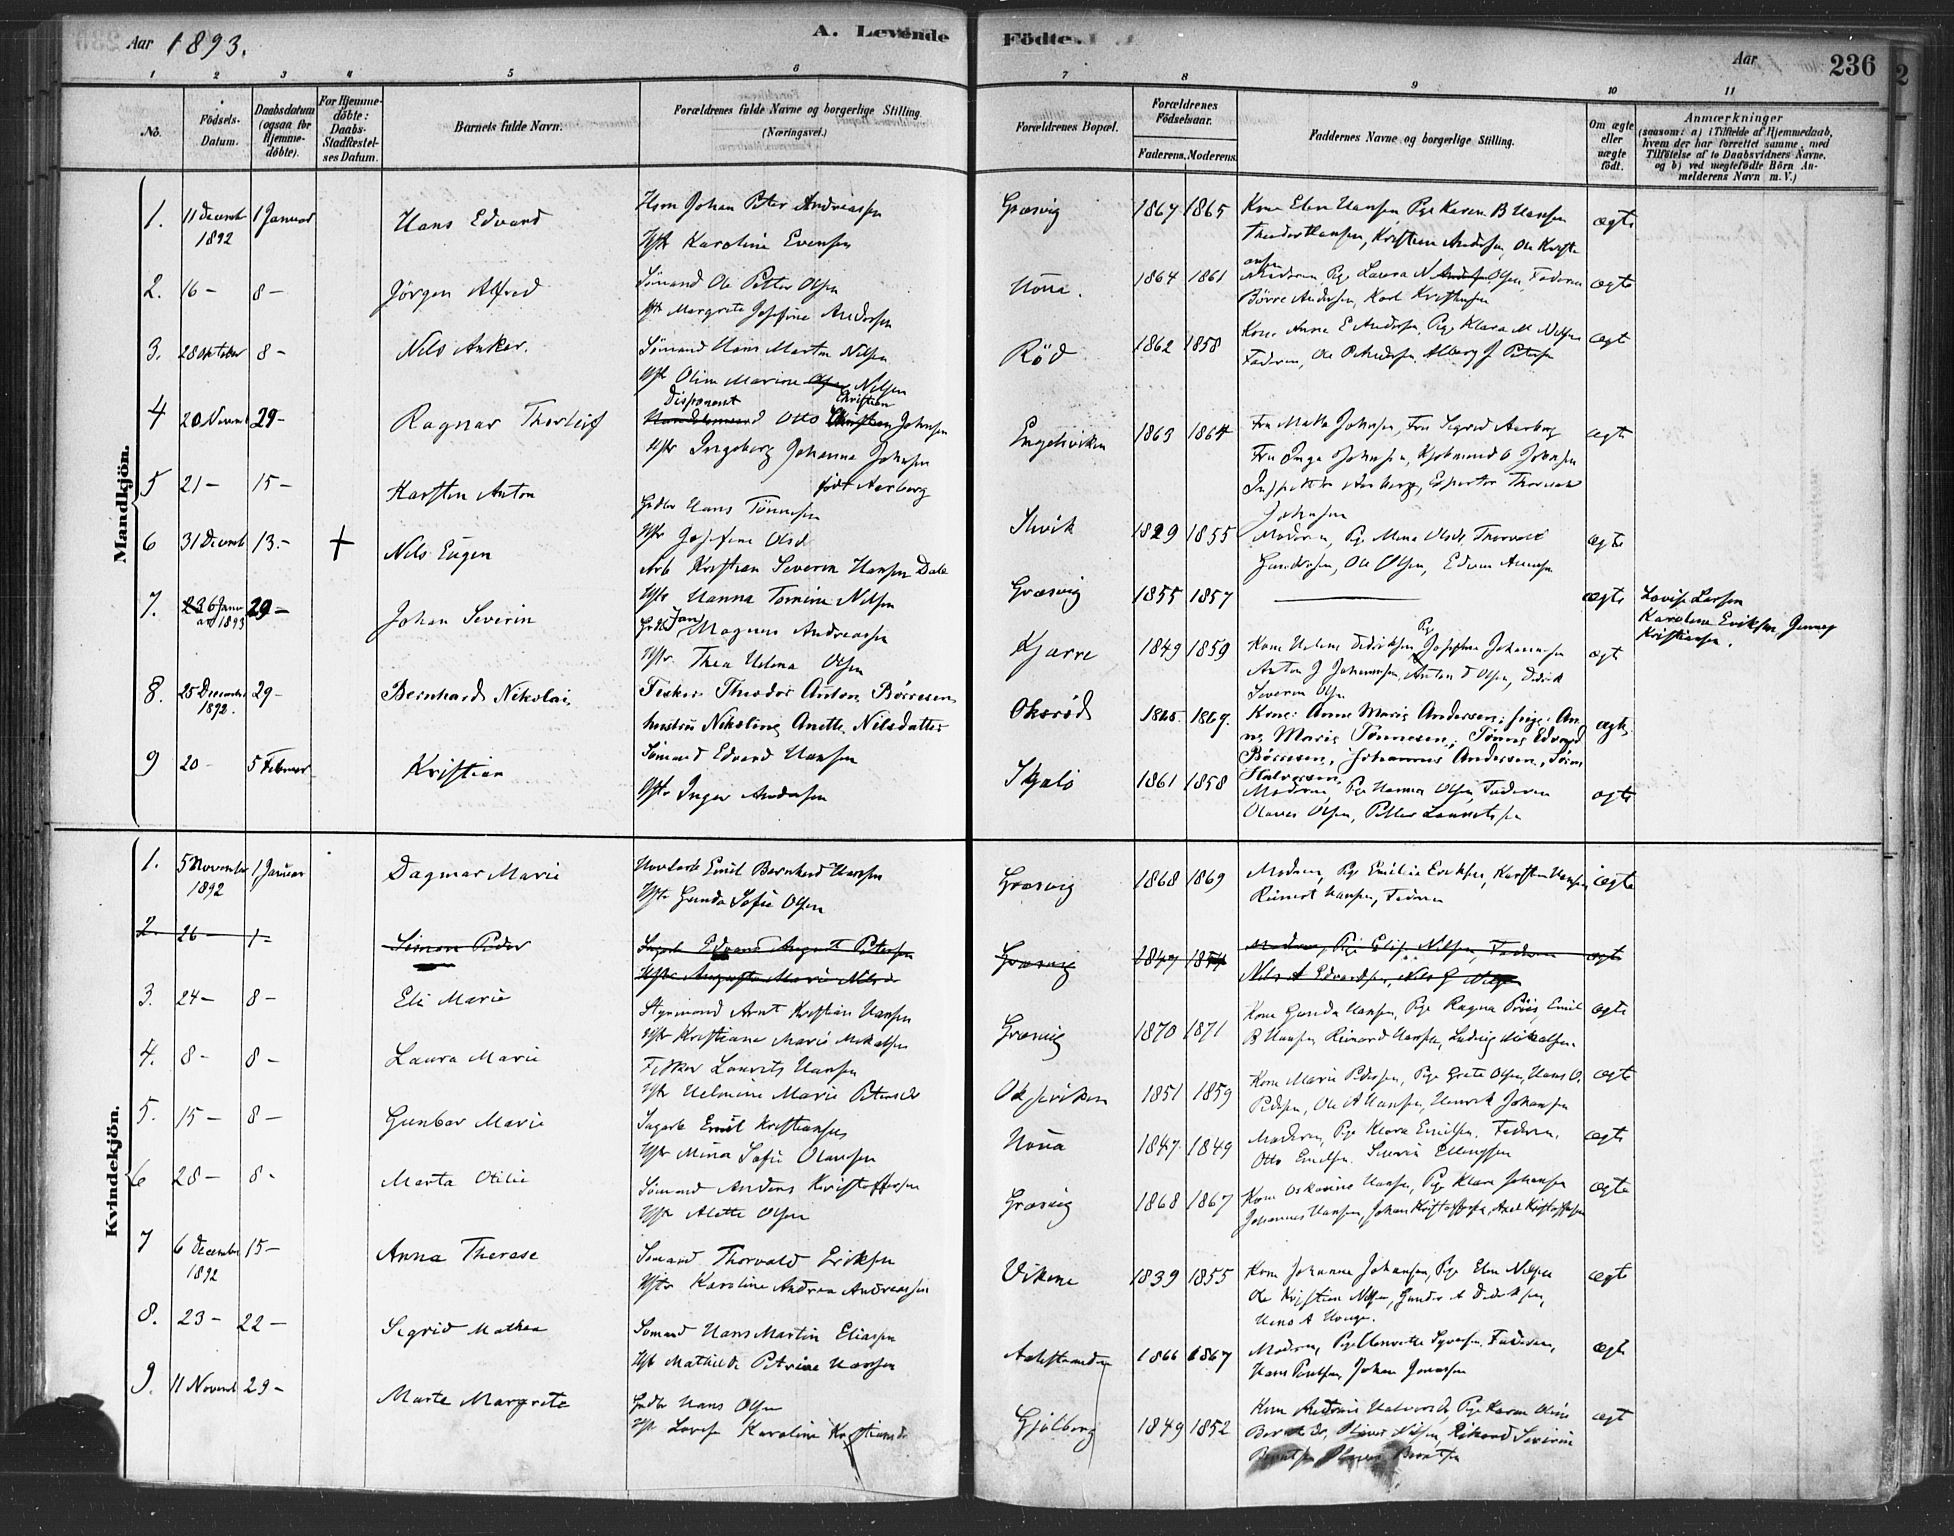 Aar 1893.
A. Levende Födte.
Aar
236
1 2 3 4 5 6 7 8 9 10 11
No.
Födsels-Datum.
Daabsdatum (ogsaa for Hjemmedöbte).
For Hjemmedöbte: Daabs-Stadfæstelses Datum.
Barnets fulde Navn.
Forældrenes fulde Navne og borgerlige Stilling.
(Næringsvei.)
Forældrenes Bopæl.
Forældrenes Födselsaar.
Faderens. Moderens.
Faddernes Navne og borgerlige Stilling.
Om ægte eller uægte födt.
Anmærkninger
(saasom: a) i Tilfælde af Hjemmedaab,
hvem der har forrettet samme, med
Tilföielse af to Daabsvidners Navne,
og b) ved uegtefödte Börn An-
melderens Navn m. V.)
Mandkjön.
1. 11 Decemb 1892 1 Januar Hans Edvard
Johan Peter Andreassen
Hstr Karoline Evensen
Græsvig 1867 1865
Kone Elen Hansen Pige Karen B Hansen
ægte
2. 16 – 8 – Jörgen Alfred
Sömand Ole Petter Olsen
Hstr Margrete Josefine Andersen
Houa. 1864 1861
Börre Andersen, Karl Kristiansen
ægte
3. 28 Oktober 8 – Nils Anker.
Sömand Hans Martin Nilsen
Hstr Oline Marine Olsen Nilsen
Röd 1862 1858
Kone Anna E Andersen, Pige Klara M Nilsen
Faderen, Ole P Andersen
ægte
4 20 Novemb 29 – Ragnar Thorleif
Disponent Otto Christian Johnsen
Hstr Ingeborg Johanna Johnsen
födt Aarberg
Engelsviken 1863 1864
Johnsen, Fru Sigrid Aarberg
Fru Inga Johnsen, Kjöbmand O Johnsen
Johnsen
ægte
5 21 – 15 – Karsten Anton
Hans Tönnesen
Hstr Josefine Olsd
Slevik 1829 1855
Moderen, Pige Mina Olsdt, Thorvald
Gundersen, Ole Olsen, Edvin
ægte
6 31 Decemb 13. – + Nils Eugen
Arb Kristian Severin Hansen Dale
Hstr Hanna Tomine Nilsen
Græsvig 1855 1857
ægte
Lovise Larsen
Karoline Eriksen, Jenny
Kristiansen.
7. 6 Janr 1893 29 – Johan Severin
Jan Magnus Andreassen
Hstr. Thea Helena Olsen
Kjærre 1849 1859
Kone Helene Didriksen Pige Josephine Johannesen
Anton J Johannesen, Anton D Olsen, Didrik
Severin Olsen
ægte
8. 25 December 1892. 29 – Bernhard Nikolai,
Fisker Theodor Anton Börresen
hustru Nikoline Anette Nilsdatter
Oksröd 1865. 1869.
Kone: Anne Marie Andersen; pige: An-
na Marie Tönnesen; Tönnes Edvard
Börresen, Johannes Andersen, Sören
Halvorsen
ægte
9 20 – 5 Februar Kristian
Sömand Edvard Hansen
Hstr Inger Andersen
Skjælö 1861 1858
Moderen, Pige Hanna Olsen, Faderen
Olaves Olsen, Petter Lauritssen
ægte
Kvindekjön.
1. 5 November 1892 1 Januar Dagmar Marie
Emil Bernhard Hansen
Hstr Gunda Sofie Olsen
Græsvig 1868 1869
Moderen, Pige Emilie Eriksen, Karsten Hansen
Reinert Hansen, Faderen
ægte
2. 26 – 1 – Simon Peder
Edvard August Petersen
Hstr Augusta Marie Nilsd
Græsvig 1847
Moderen, Pige Elise Nilsen, Faderen
Nils A Edvardsen, Nils G
ægte
3. 24 – 8 – Eli Marie
Styrmand Arnt Kristian Hansen
Hstr Kristiane Marie Mikalsen
Græsvig 1870 1871
Kone Gunda Hansen, Pige Ragna Emil
B Hansen, Reinard Hansen, Ludvig Mikalsen.
ægte
4. 8 – 8 – Laura Marie
Fisker Laurits Hansen
Hstr Helmine Marie Petersdt
Oksviken 1851 1859
Kone Marie Pedersen, Pige Grete Olsen, Hans O.
Pedersen, Ole A Hansen, Henrik Johansen
ægte
5. 15 – 8 – Gunbor Marie
Sagarb Emil Kristiansen
Hstr Mina Sofie Olaussen
Houa 1847. 1849
Moderen, Pige Klara Emilsen, Faderen,
Otto Emilsen. Ellingsen
ægte
6 28 – 8 – Marta Otilie
Sömand Anders Kristoffersen
Hstr Alette Olsen
Græsvig 1868 1867
Kone Oskarine Hansen, Pige Klara Johansen
Johannes Hansen, Johan Kristoffersen, Axel Kristoffersen
ægte
7 6 December 1892 15 – Anna Therese
Sömand Thorvald Eriksen
Hstr Karoline Andrea Andreassen
Vikene 1839 1855
Kone Johanne Johansen, Pige Elen Nilsen
Ole Kristian Nilsen, Gunder A Didriksen,
Hans A
ægte
8. 23 – 22 – Sigrid Mathea
Sömand Hans Martin Eliassen
Hstr Mathilde Petrine Hansen
Aalestranden 1866 1867
Moderen, Pige Faderen,
Johan Jonassen
ægte
9. 11 Novemb 29 – Marte Margrete
Hans Olsen
Hstr Lovise Karoline Kristiansdt
Gjölberg 1849 1852
Pige Karen Oline
Nilsen, Rikard Severin
Berntsen
ægt